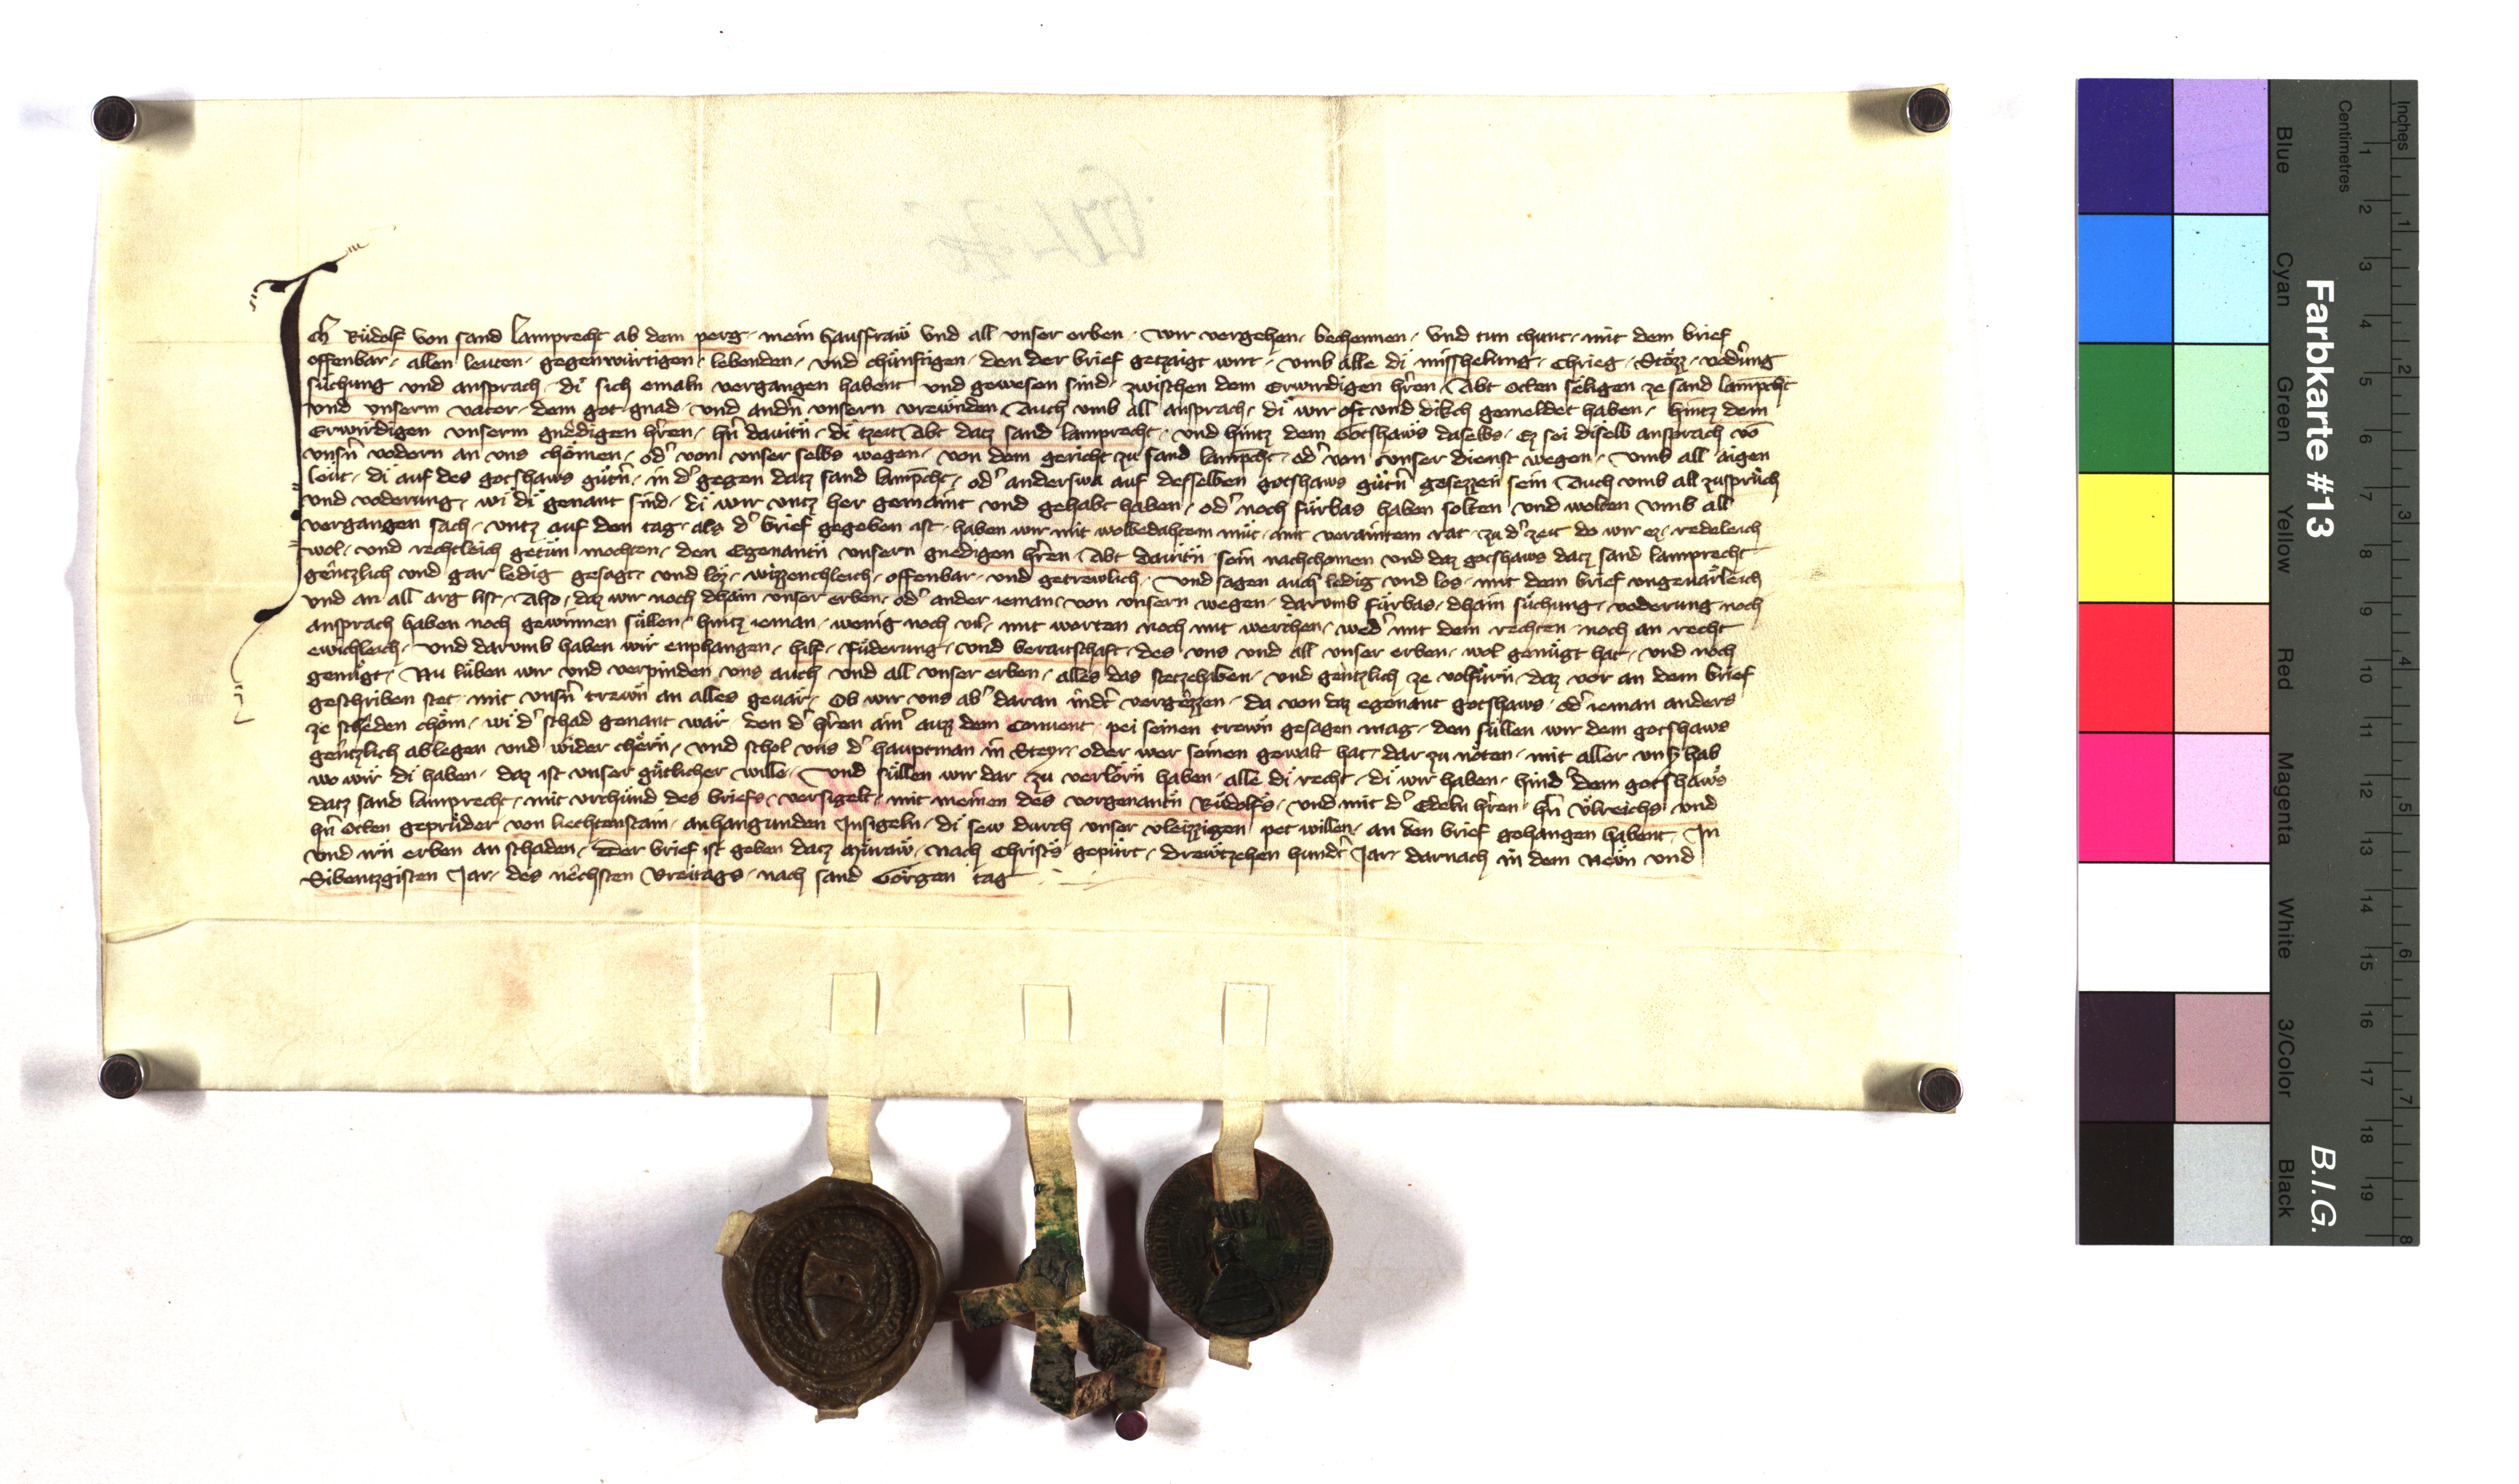 Ich Růdolf von sand Lamprecht ab dem perg · mein hausfraw vnd all vnser erben · Wir vergehen · bechennen · vnd tun chunt · mit dem brief
offenbar · allen leuten · gegenwürtigen · lebenden · vnd chünftigen · den der brief getzaigt wirt · vmb alle di misshelung · chrieg · Stözz · vodrung
süchung vnd ansprach · di sich emaln vergangen habent vnd gewesen sind · zwischen dem Erwirdigen hren · Abt Otten seligen ze sand lampcht
vnd vnserm vater · dem got gnad · vnd andn vnsern vrewnden Auch vmb all ansprach · di wir oft vnd dikch gemeldet haben · hintz dem
Erwirdigen vnserm gnëdigen hren · hn dauitn · di tzeit Abt datz sand lamprecht · vnd hintz dem Gotshaws daselbs · Ez sei diselb ansprach vō
vnsn vodern an vns chömen · od von vnser selbs wegen · von dem gericht zu sand lampcht · od von vnser dienst wegen · Vmb all aigen
leut · di auf des gotshaws gütn · in d gegen datz sand lampcht · od anderswa auf desselben gotshaws gütn gesezzen sein Auch vmb all zusprüch
vnd voderung · wi di genant sind · di wir vntz her gemaint vnd gehabt haben · od noch fürbas haben solten vnd wolten vmb all
vergangen sach · vntz auf den tag · als d brief gegeben ist · haben wir mit wolbedahtem müt · mit veraintem rat · zu d zeit do wir ez · redeleich
wol · vnd rechtleich getün mochten · den Egenantn vnsern gnedigen hren · Abt dauitn sein nachchomen vnd daz gotshaws datz sand lamprecht
gëntzlich vnd gar ledig gesagt · vnd löz · wizzenchleich · offenbar · vnd getrewlich · Vnd sagen auch ledig vnd los · mit dem brief vngeuärleich
vnd an all arg list · Also · daz wir noch dhain vnser erben · od ander ieman · von vnsern wegen · darvmb fürbas · dhain süchung · voderung noch
ansprach haben noch gewinnen süllen · hintz ieman · wenig noch vil · mit worten noch mit werchen · wed mit dem rechten · noch an recht
ewichleich · Vnd darvmb haben wir enphangen · hilf · füderung · vnd beraitschaft · des vns vnd all vnser erben · wol genügt hat · vnd noch
genügt · Nu lüben wir vnd verpinden vns auch vnd all vnser erben · alles das stetzehaben · vnd gëntzlich ze volfürn daz vor an dem brief
geschriben stet · mit vnsn trewn an alles geuär · Ob wir vns ab daran indt vergëzzen · da von daz egenant gotshaws · od ieman anders
ze schëden chöm · wi d schad genant wär den d hren ain auzz dem Conuent · pei seinen trewn gesagen mag · den süllen wir dem gotshaws
gëntzlich ablegen vnd wider chërn · vnd schol vns d hauptman in Steyr · oder wer seinen gewalt hat · dar zu nöten · mit aller vnsr hab
wo wir di haben · daz ist vnser gütlicher wille · Vnd süllen wir dar zu verlorn haben · alle di recht · di wir haben · hind dem gotshaws
datz sand lamprecht · mit vrchünd des briefs · versigelt · mit meinen des vorgenantn Rüdolfs · vnd mit d Edeln hren · hn Vlreichs vnd
hn Otten geprüder von liechtenstain · anhangunden Insigeln · di sew durch vnser vleizzigen pet willen · an den brief gehangen habent · In
vnd irn erben an schaden · Der brief ist geben datz Müraw · nach Christs gepürt · drewtzehen hundt Jar · darnach in dem Newn vnd
Sibentzgisten Jar · des nëchsten Vreitags · nach sand Görgen tag
Farbkarte #13
B.I.G.
Inches
Centimetres
1 2 3 4 5 6 7 8 9 10 11 12 13 14 15 16 17 18 19
1 2 3 4 5 6 7 8
Blue Cyan Green Yellow Red Magenta White 3/Color Black